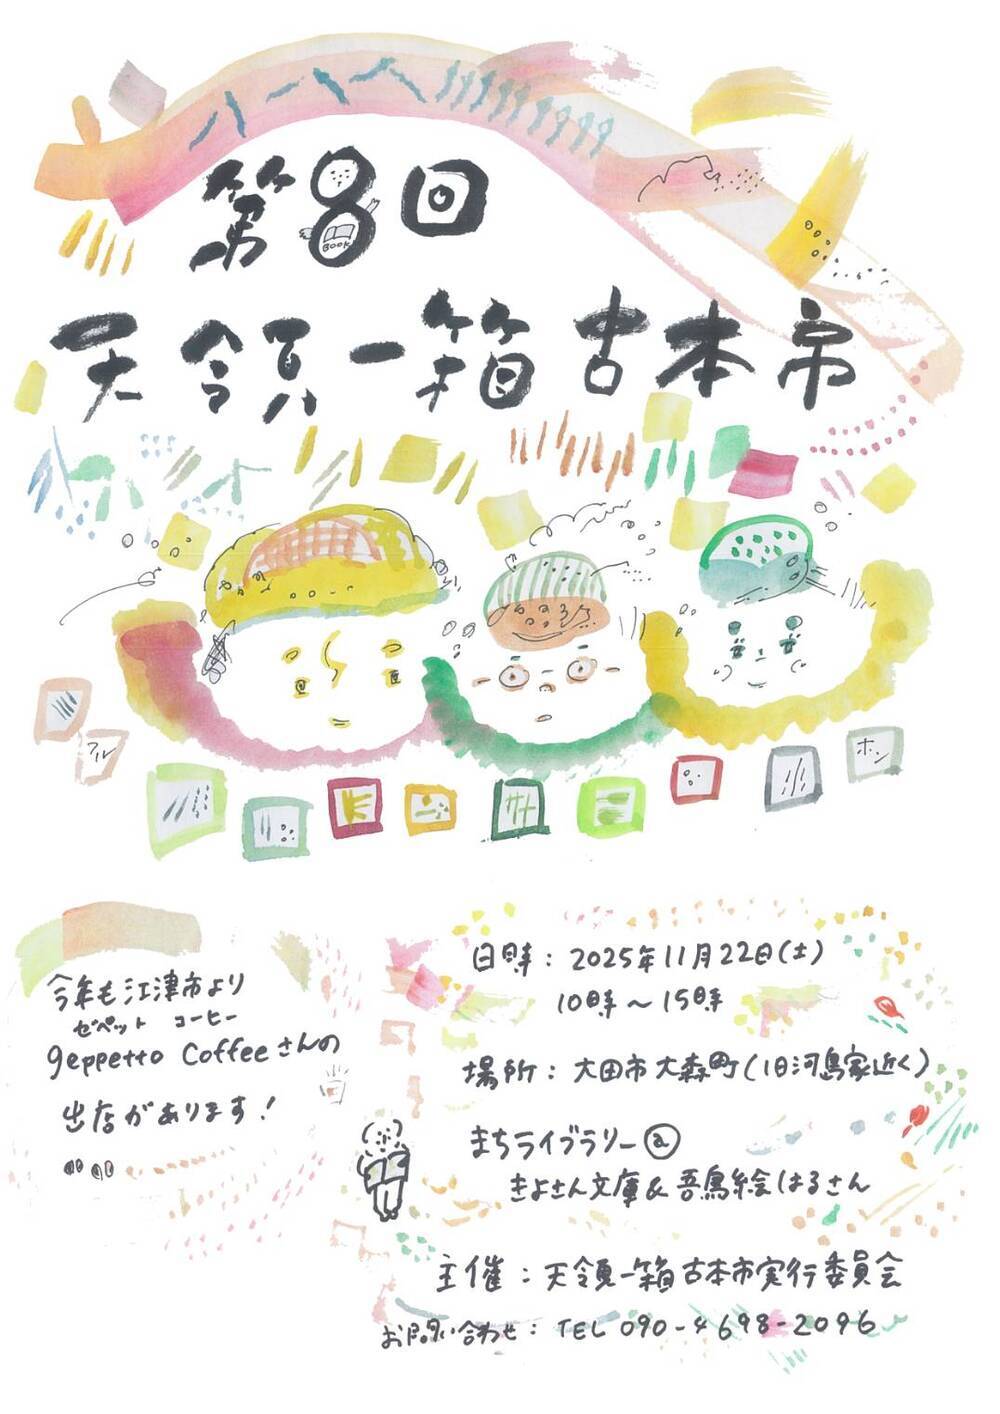 第8回
BOOK
天領一箱古本市
アル
ホン
今年も江津市より
ゼペット コーヒー
geppetto Coffeeさんの
出店があります!
日時：2025年11月22日(土)
10時〜15時
場所：大田市大森町(旧河島家近く)
まちライブラリー@
きよさん文庫&吾鳥絵はるさん
主催：天領一箱古本市実行委員会
お問い合わせ：TEL 090-4698-2096